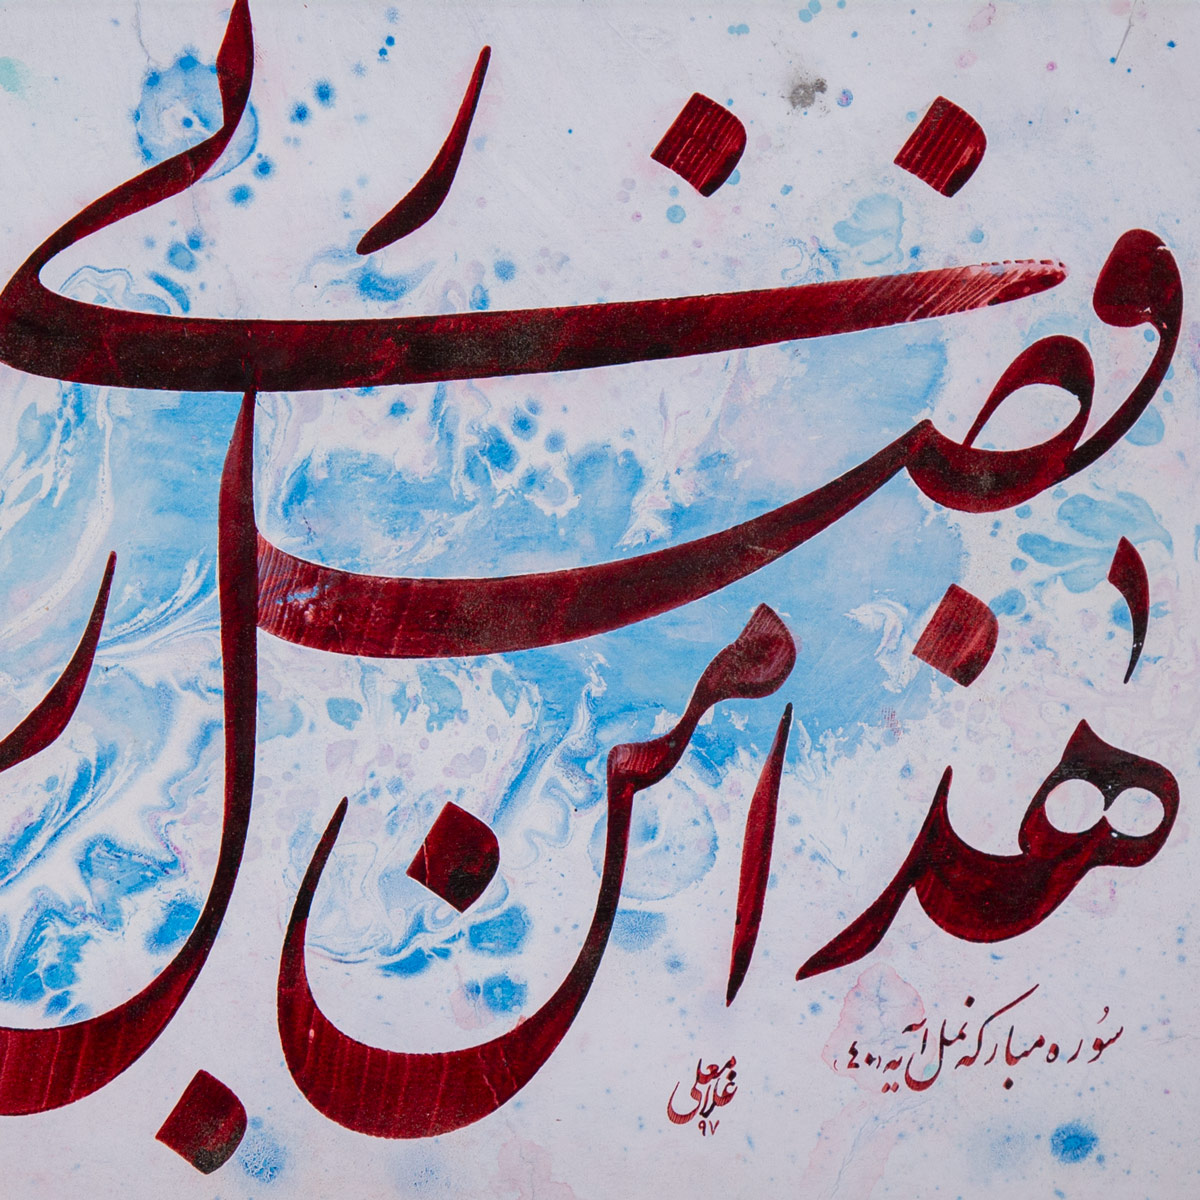 هٰذا من فضل ربی
سُوره مبارکه نمل آیه (٤٠)
غلامعلی
۹۷